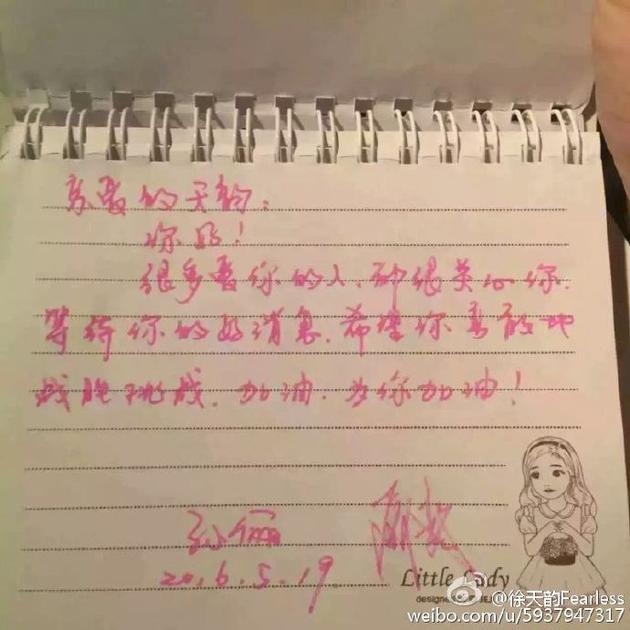 亲爱的天韵:
你好!
很多爱你的人,都很关心你,
等待你的好消息,希望你勇敢地
战胜挑战,加油,为你加油!
孙俪
2016.5.19.
Little Lady
@徐天韵Fearless
weibo.com/u/5937947317